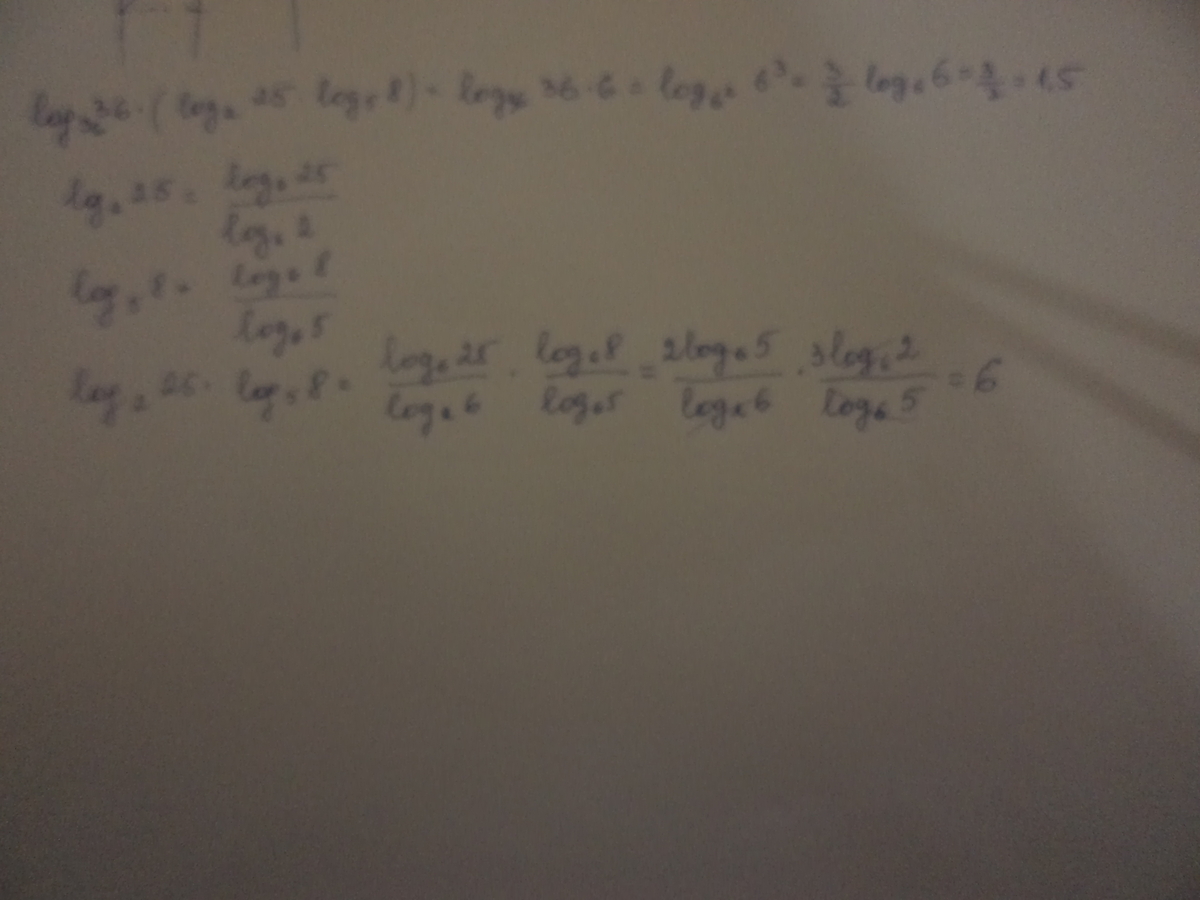 log₃₆36·(log₂ 25·log₅8) = log₃₆ 36·6 = log₆² 6³ = 3/2 log₆6 = 3/2 = 1,5
log₂25 = log₆25/log₆2
log₅8 = log₆8/log₆5
log₂25·log₅8 = log₆25/log₆6 · log₆8/log₆5 = 2log₆5/log₆6 · 3log₆2/log₆5 = 6